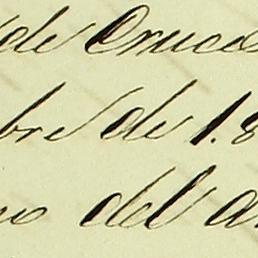 de Cruces
bre de 1.8
no del a